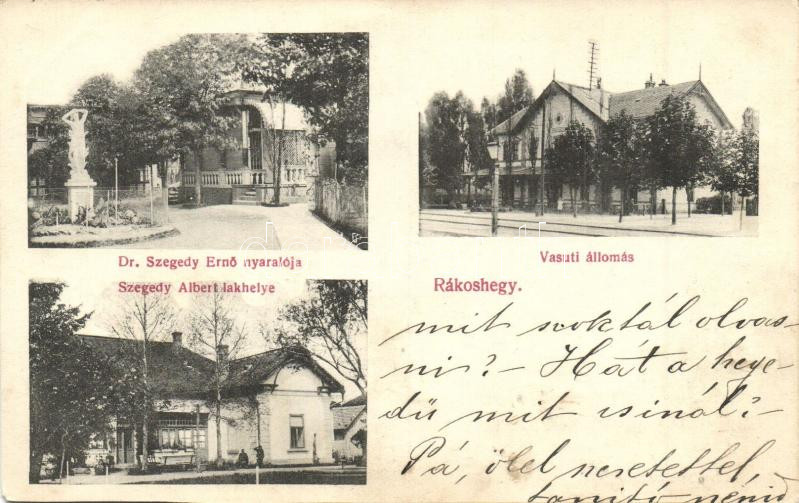 Dr. Szegedy Ernő nyaralója
Szegedy Albert lakhelye
Vasuti állomás
Rákoshegy.
mit szoktál olvas-
ni? - Hát a hege-
dü mit csinál? -
Pá, ölel szeretettel,
tanitó nénid